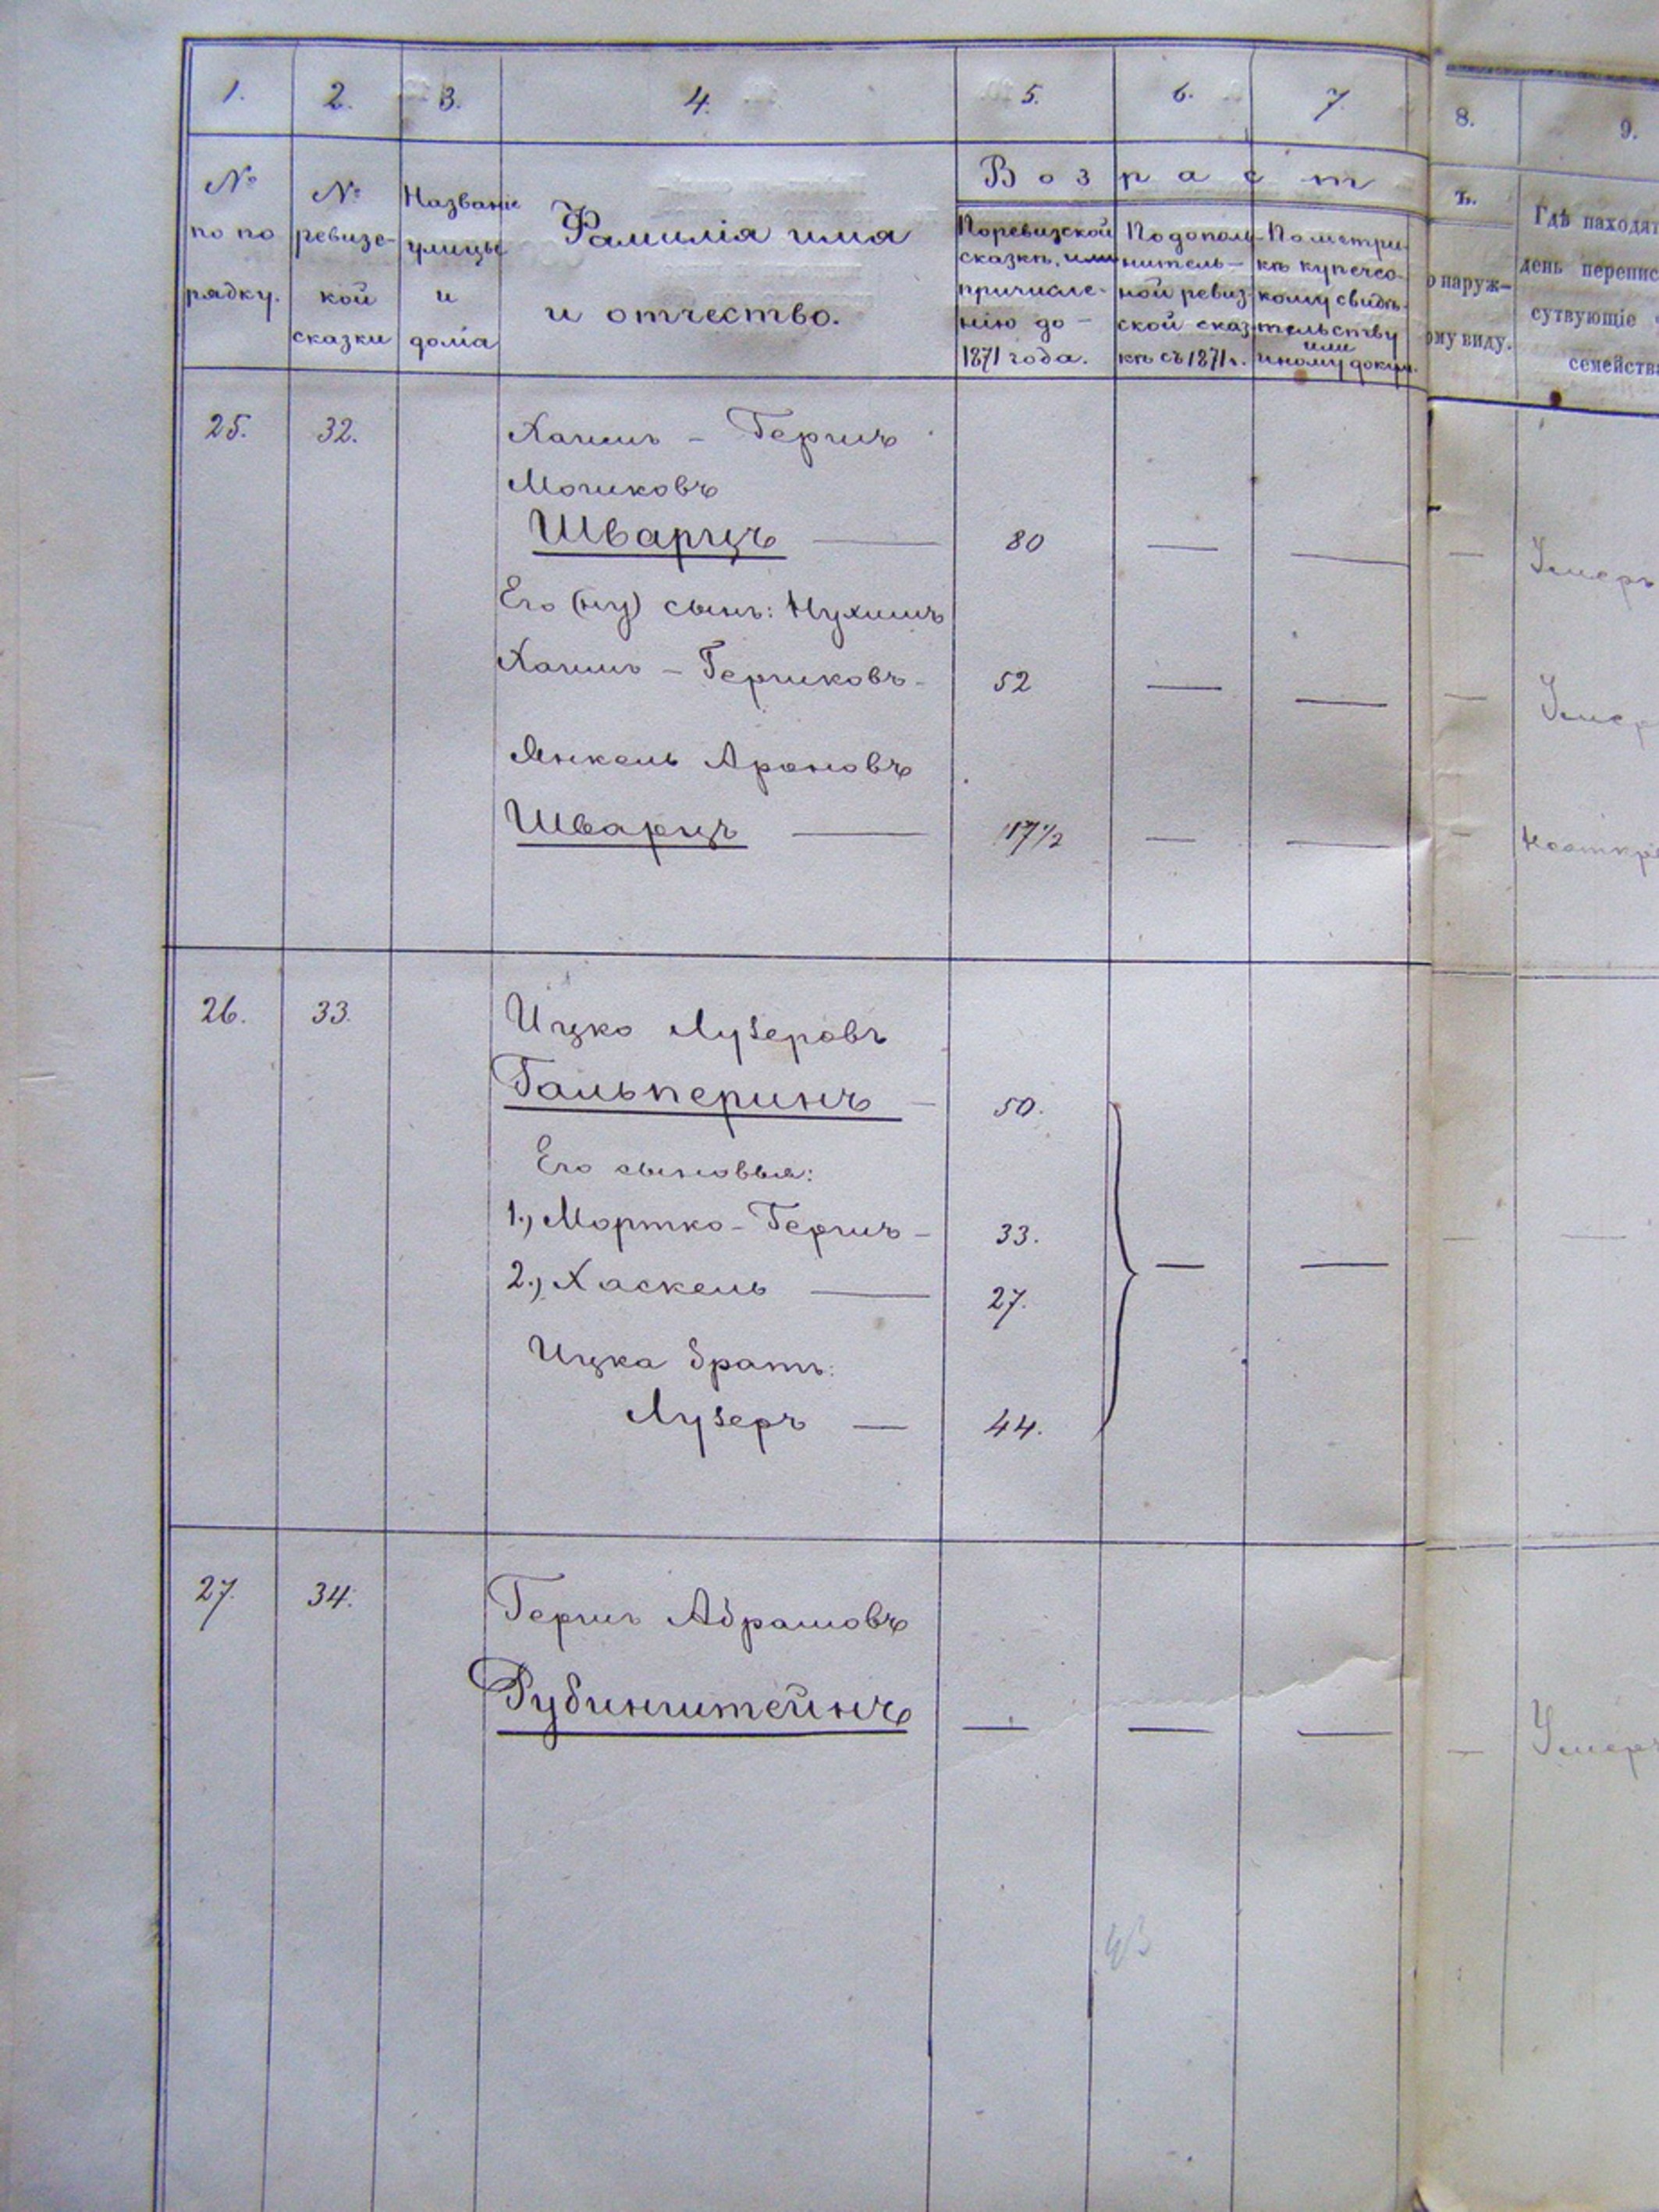 1. 2. 3. 4. 5. 6. 7. 8. 9.
№
по по
рядку.
№
ревизс-
кой
сказки
Названіе
улицы
и
дома
Фамилія имя
и отчество.
Возраст
По ревизской
сказкѣ, или
причисле-
нію до
1871 года.
По дополн-
нитель-
ной ревиз-
ской сказ-
кѣ съ 1871 г.
По метри-
кѣ купечес-
кому свидѣ-
тельству
или
иному докум.
ъ.
о наруж-
ому виду.
Гдѣ находят
день перепис
сутвующіе
семейств
25. 32. Хаимъ - Гершъ
Мошковъ
Шварцъ — 80 — — — Умеръ
Его (му) сынъ: Нухимъ
Хаимъ - Гершковъ - 52 — — — Умер
Янкель Ароновъ
Шварцъ — 17 1/2 — — —
26. 33. Ицко Лузеровъ
Гальперинъ — 50.
Его сыновья:
1.) Мортко - Гершъ - 33. — — — —
2.) Хаскель — 27.
Ицка братъ:
Лузеръ — 44.
27. 34. Гершъ Абрамовъ
Рубинштейнъ — — — — Умеръ